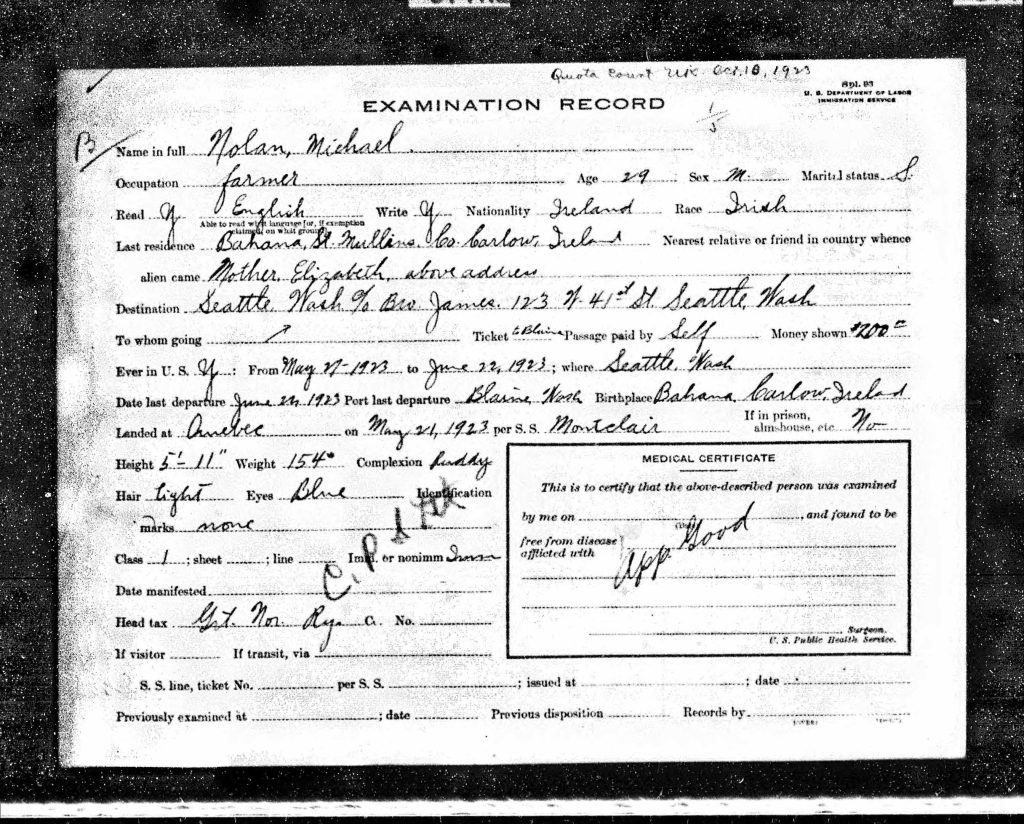 Quota Count Oct. 18, 1923
Spl. 93
U. S. DEPARTMENT OF LABOR
IMMIGRATION SERVICE
EXAMINATION RECORD
B
Name in full Nolan, Michael.
Occupation farmer Age 29 Sex M. Marital status S.
Read Y English Write Y Nationality Ireland Race Irish
Able to read what language (or, if exemption claimed, on what ground)
Last residence Bahana, St. Mullins, Co. Carlow, Ireland Nearest relative or friend in country whence
alien came Mother, Elizabeth, above address
Destination Seattle, Wash. c/o Bro. James. 123 N 41st St. Seattle, Wash
To whom going Ticket to Blaine Passage paid by Self Money shown $200=
Ever in U. S. Y : From May 27-1923 to June 22, 1923; where Seattle, Wash
Date last departure June 22, 1923 Port last departure Blaine Wash Birthplace Bahana, Carlow, Ireland
Landed at Quebec on May 21, 1923 per S. S. Montclair If in prison, almshouse, etc. No
Height 5'-11" Weight 154# Complexion Ruddy
Hair light Eyes Blue Identification
marks none
Class 1; sheet ; line Imm. or nonimm Imm
C.P.
Date manifested
Head tax Grt. Nor. Rys C. No.
If visitor If transit, via
MEDICAL CERTIFICATE
This is to certify that the above-described person was examined
by me on , and found to be
(Date)
free from disease
afflicted with
App. Good
Surgeon.
U. S. Public Health Service.
S. S. line, ticket No. per S. S. ; issued at ; date
Previously examined at ; date Previous disposition Records by